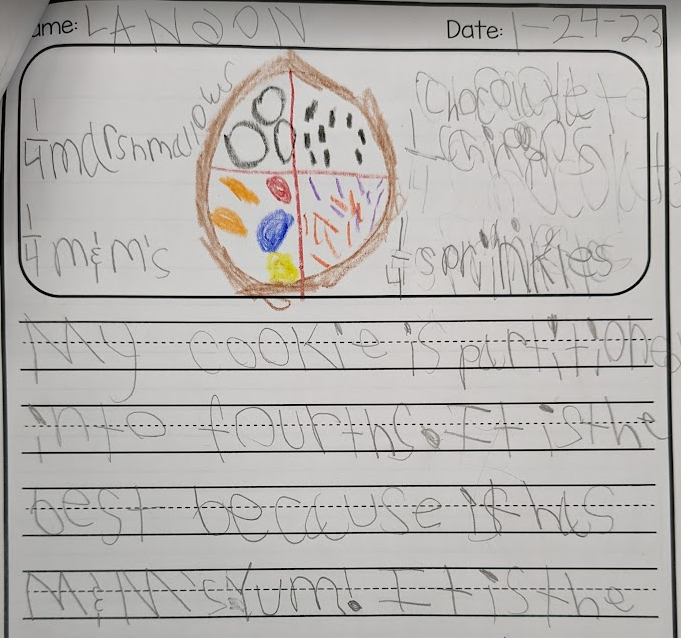 ame: LANDON Date: 1-24-23
1/4 marshmallows
1/4 chocolate chips
1/4 M&M's
1/4 sprinkles
My cookie is partitione
into fourths. It is the
best because it has
M&M's Yum! It is the